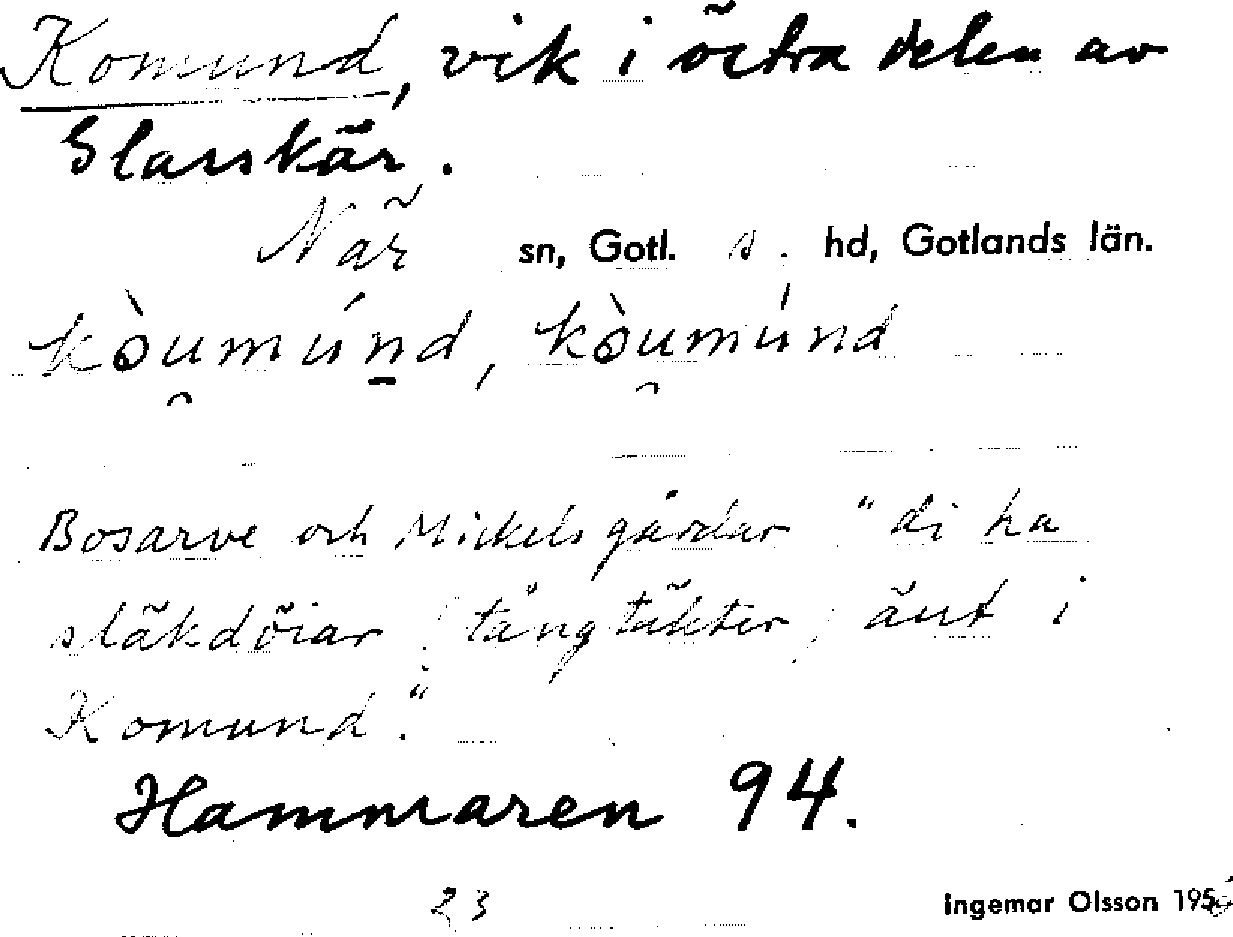 Komund, vik i östra delen av
Glasskär.
När sn, Gotl. s. hd, Gotlands län.
kòu̯mún̠d, kòu̯múnd
Bosarve och Mickelsgårdar "di ha
släkdöiar (tångtäkter) äut i
Komund."
Hammaren 94.
23 Ingemar Olsson 195